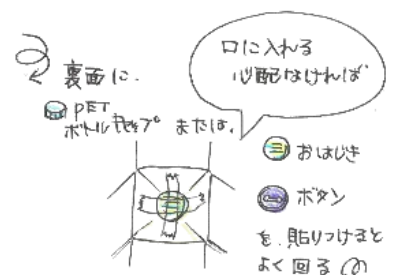 裏面に、
PET
ボトルキャップ または、
口に入れる
心配なければ
おはじき
ボタン
を、貼りつけると
よく回る